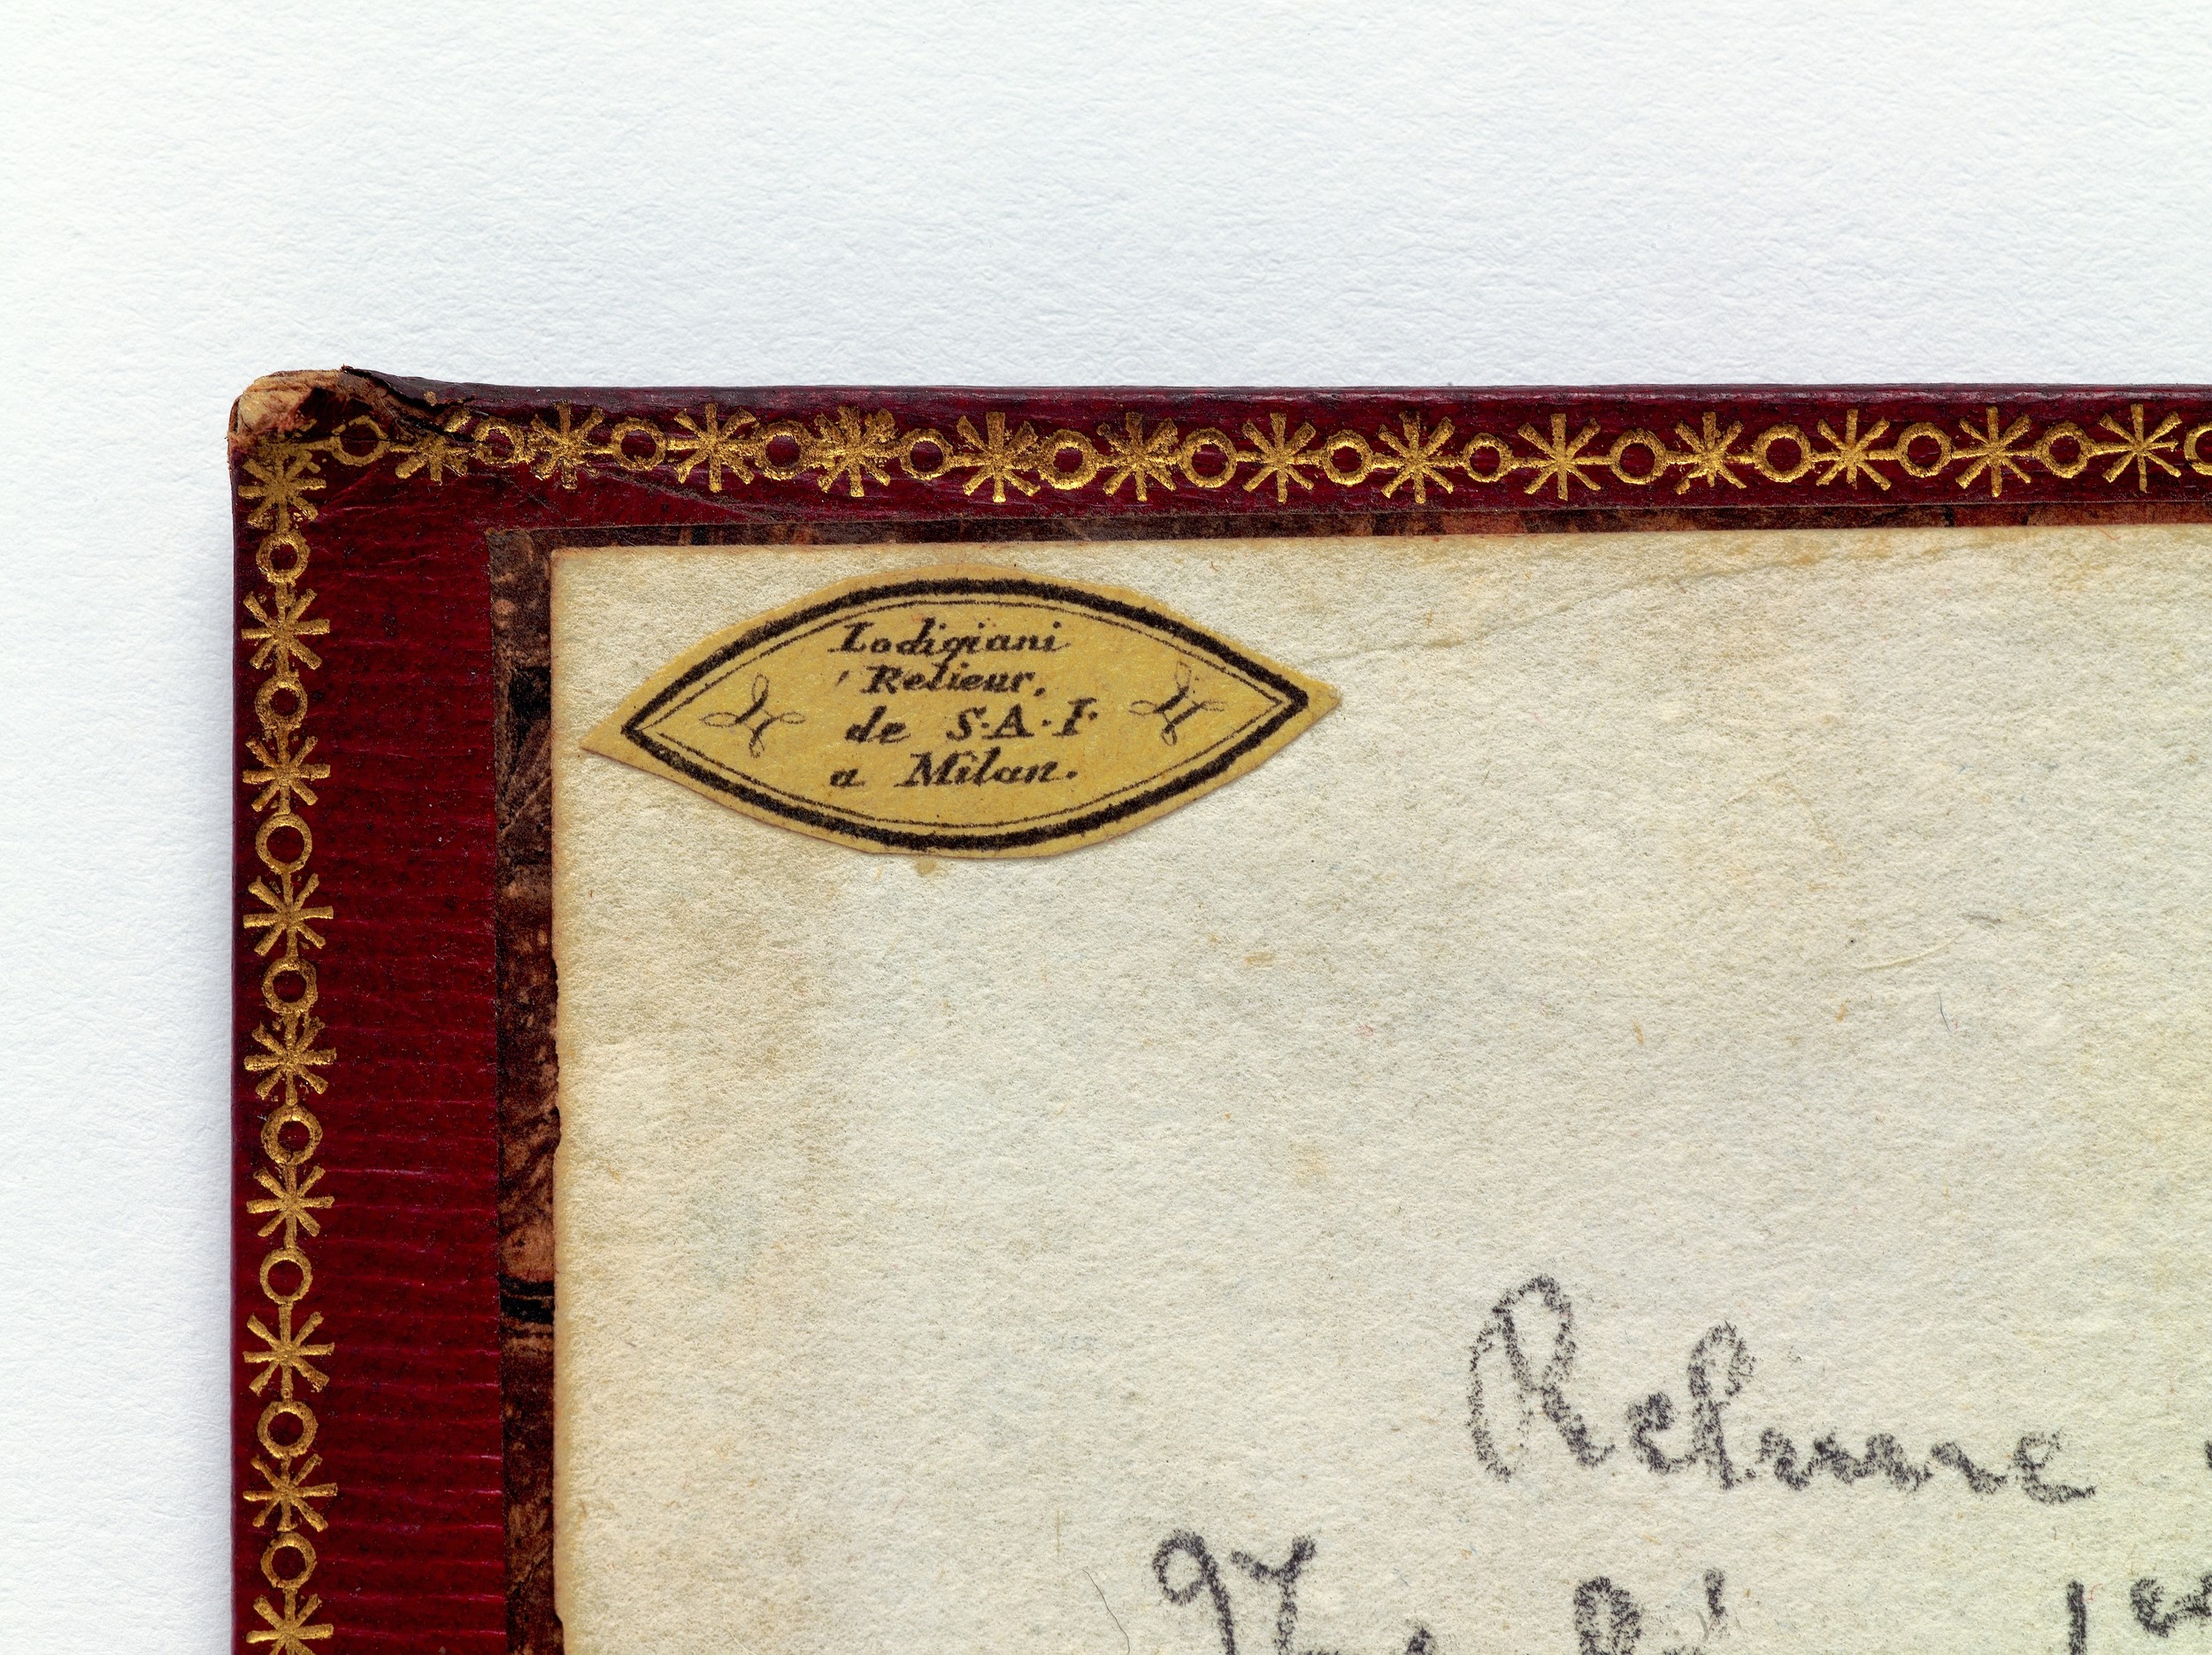 Lodigiani
Relieur,
de S.A.I.
a Milan.
Reliure